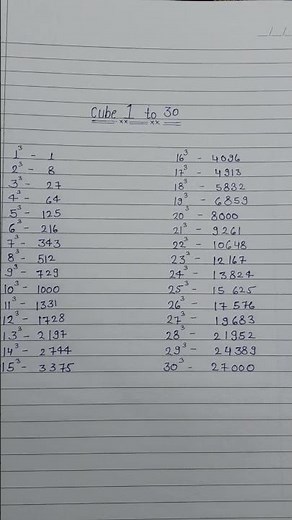 Cube 1 to 30
1³ - 1
2³ - 8
3³ - 27
4³ - 64
5³ - 125
6³ - 216
7³ - 343
8³ - 512
9³ - 729
10³ - 1000
11³ - 1331
12³ - 1728
13³ - 2197
14³ - 2744
15³ - 3375
16³ - 4096
17³ - 4913
18³ - 5832
19³ - 6859
20³ - 8000
21³ - 9261
22³ - 10648
23³ - 12167
24³ - 13824
25³ - 15625
26³ - 17576
27³ - 19683
28³ - 21952
29³ - 24389
30³ - 27000